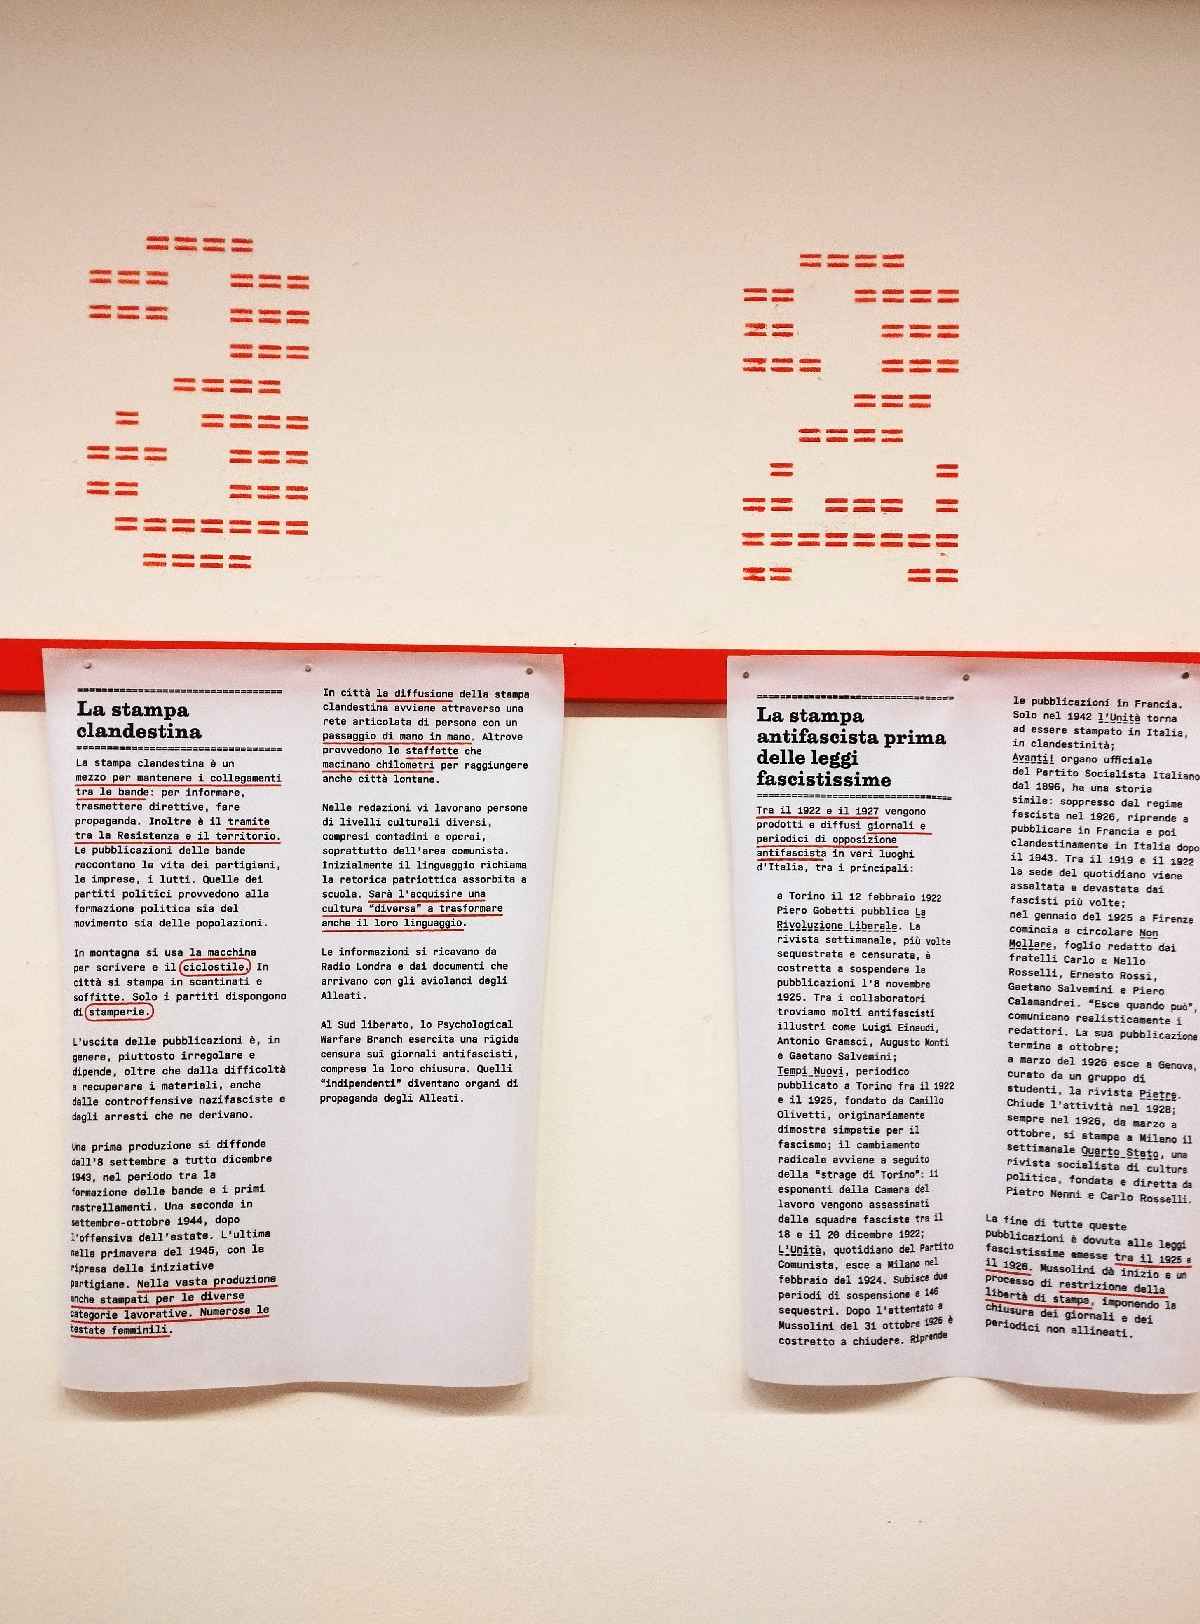 3
2
La stampa
clandestina
La stampa clandestina è un
mezzo per mantenere i collegamenti
tra le bande: per informare,
trasmettere direttive, fare
propaganda. Inoltre è il tramite
tra la Resistenza e il territorio.
Le pubblicazioni delle bande
raccontano la vita dei partigiani,
le imprese, i lutti. Quelle dei
partiti politici provvedono alla
formazione politica sia del
movimento sia delle popolazioni.
In montagna si usa la macchina
per scrivere e il ciclostile. In
città si stampa in scantinati e
soffitte. Solo i partiti dispongono
di stamperie.
L'uscita delle pubblicazioni è, in
genere, piuttosto irregolare e
dipende, oltre che dalla difficoltà
a recuperare i materiali, anche
dalle controffensive nazifasciste e
dagli arresti che ne derivano.
Una prima produzione si diffonde
dall'8 settembre a tutto dicembre
1943, nel periodo tra la
formazione delle bande e i primi
rastrellamenti. Una seconda in
settembre-ottobre 1944, dopo
l'offensiva dell'estate. L'ultima
nella primavera del 1945, con la
ripresa delle iniziative
partigiane. Nella vasta produzione
anche stampati per le diverse
categorie lavorative. Numerose le
testate femminili.
In città la diffusione della stampa
clandestina avviene attraverso una
rete articolata di persone con un
passaggio di mano in mano. Altrove
provvedono le staffette che
macinano chilometri per raggiungere
anche città lontane.
Nelle redazioni vi lavorano persone
di livelli culturali diversi,
compresi contadini e operai,
soprattutto dell'area comunista.
Inizialmente il linguaggio richiama
la retorica patriottica assorbita a
scuola. Sarà l'acquisire una
cultura "diversa" a trasformare
anche il loro linguaggio.
Le informazioni si ricavano da
Radio Londra e dai documenti che
arrivano con gli aviolanci degli
Alleati.
Al Sud liberato, lo Psychological
Warfare Branch esercita una rigida
censura sui giornali antifascisti,
compresa la loro chiusura. Quelli
"indipendenti" diventano organi di
propaganda degli Alleati.
La stampa
antifascista prima
delle leggi
fascistissime
Tra il 1922 e il 1927 vengono
prodotti e diffusi giornali e
periodici di opposizione
antifascista in vari luoghi
d'Italia, tra i principali:
a Torino il 12 febbraio 1922
Piero Gobetti pubblica La
Rivoluzione Liberale. La
rivista settimanale, più volte
sequestrata e censurata, è
costretta a sospendere le
pubblicazioni l'8 novembre
1925. Tra i collaboratori
troviamo molti antifascisti
illustri come Luigi Einaudi,
Antonio Gramsci, Augusto Monti
e Gaetano Salvemini;
Tempi Nuovi, periodico
pubblicato a Torino fra il 1922
e il 1925, fondato da Camillo
Olivetti, originariamente
dimostra simpatie per il
fascismo; il cambiamento
radicale avviene a seguito
della "strage di Torino": 11
esponenti della Camera del
lavoro vengono assassinati
dalle squadre fasciste tra il
18 e il 20 dicembre 1922;
L'Unità, quotidiano del Partito
Comunista, esce a Milano nel
febbraio del 1924. Subisce due
periodi di sospensione e 146
sequestri. Dopo l'attentato a
Mussolini del 31 ottobre 1926 è
costretto a chiudere. Riprende
le pubblicazioni in Francia.
Solo nel 1942 l'Unità torna
ad essere stampato in Italia,
in clandestinità;
Avanti! organo ufficiale
del Partito Socialista Italiano
dal 1896, ha una storia
simile: soppresso dal regime
fascista nel 1926, riprende a
pubblicare in Francia e poi
clandestinamente in Italia dopo
il 1943. Tra il 1919 e il 1922
la sede del quotidiano viene
assaltata e devastata dai
fascisti più volte;
nel gennaio del 1925 a Firenze
comincia a circolare Non
Mollare, foglio redatto dai
fratelli Carlo e Nello
Rosselli, Ernesto Rossi,
Gaetano Salvemini e Piero
Calamandrei. "Esce quando può",
comunicano realisticamente i
redattori. La sua pubblicazione
termina a ottobre;
a marzo del 1926 esce a Genova,
curato da un gruppo di
studenti, la rivista Pietre.
Chiude l'attività nel 1928;
sempre nel 1926, da marzo a
ottobre, si stampa a Milano il
settimanale Quarto Stato, una
rivista socialista di cultura
politica, fondata e diretta da
Pietro Nenni e Carlo Rosselli.
La fine di tutte queste
pubblicazioni è dovuta alle leggi
fascistissime emesse tra il 1925 e
il 1926. Mussolini dà inizio a un
processo di restrizione della
libertà di stampa, imponendo la
chiusura dei giornali e dei
periodici non allineati.